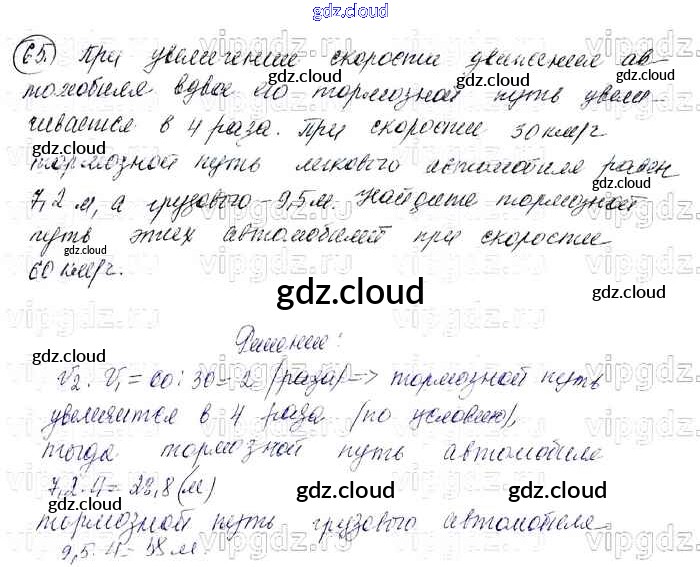 gdz.cloud
65. При увеличении скорости движения ав-
gdz.cloud
gdz.cloud
томобиля вдвое его тормозной путь увели-
чивается в 4 раза. При скорости 30 км/ч
gdz.cloud
gdz.cloud
тормозной путь легкового автомобиля равен
gdz.cloud
7,2 м, а грузового - 9,5 м. Найдите тормозной
путь этих автомобилей при скорости
gdz.cloud
gdz.cloud
60 км/ч.
gdz.cloud
Решение:
gdz.cloud
gdz.cloud
V2 : V1 = 60 : 30 = 2 (раза) => тормозной путь
увеличится в 4 раза (по условию),
gdz.cloud
тогда тормозной путь автомобиля
7,2 · 4 = 28,8 (м)
gdz.cloud
gdz.cloud
тормозной путь грузового автомобиля
9,5 · 4 = 38 м.
gdz.cloud